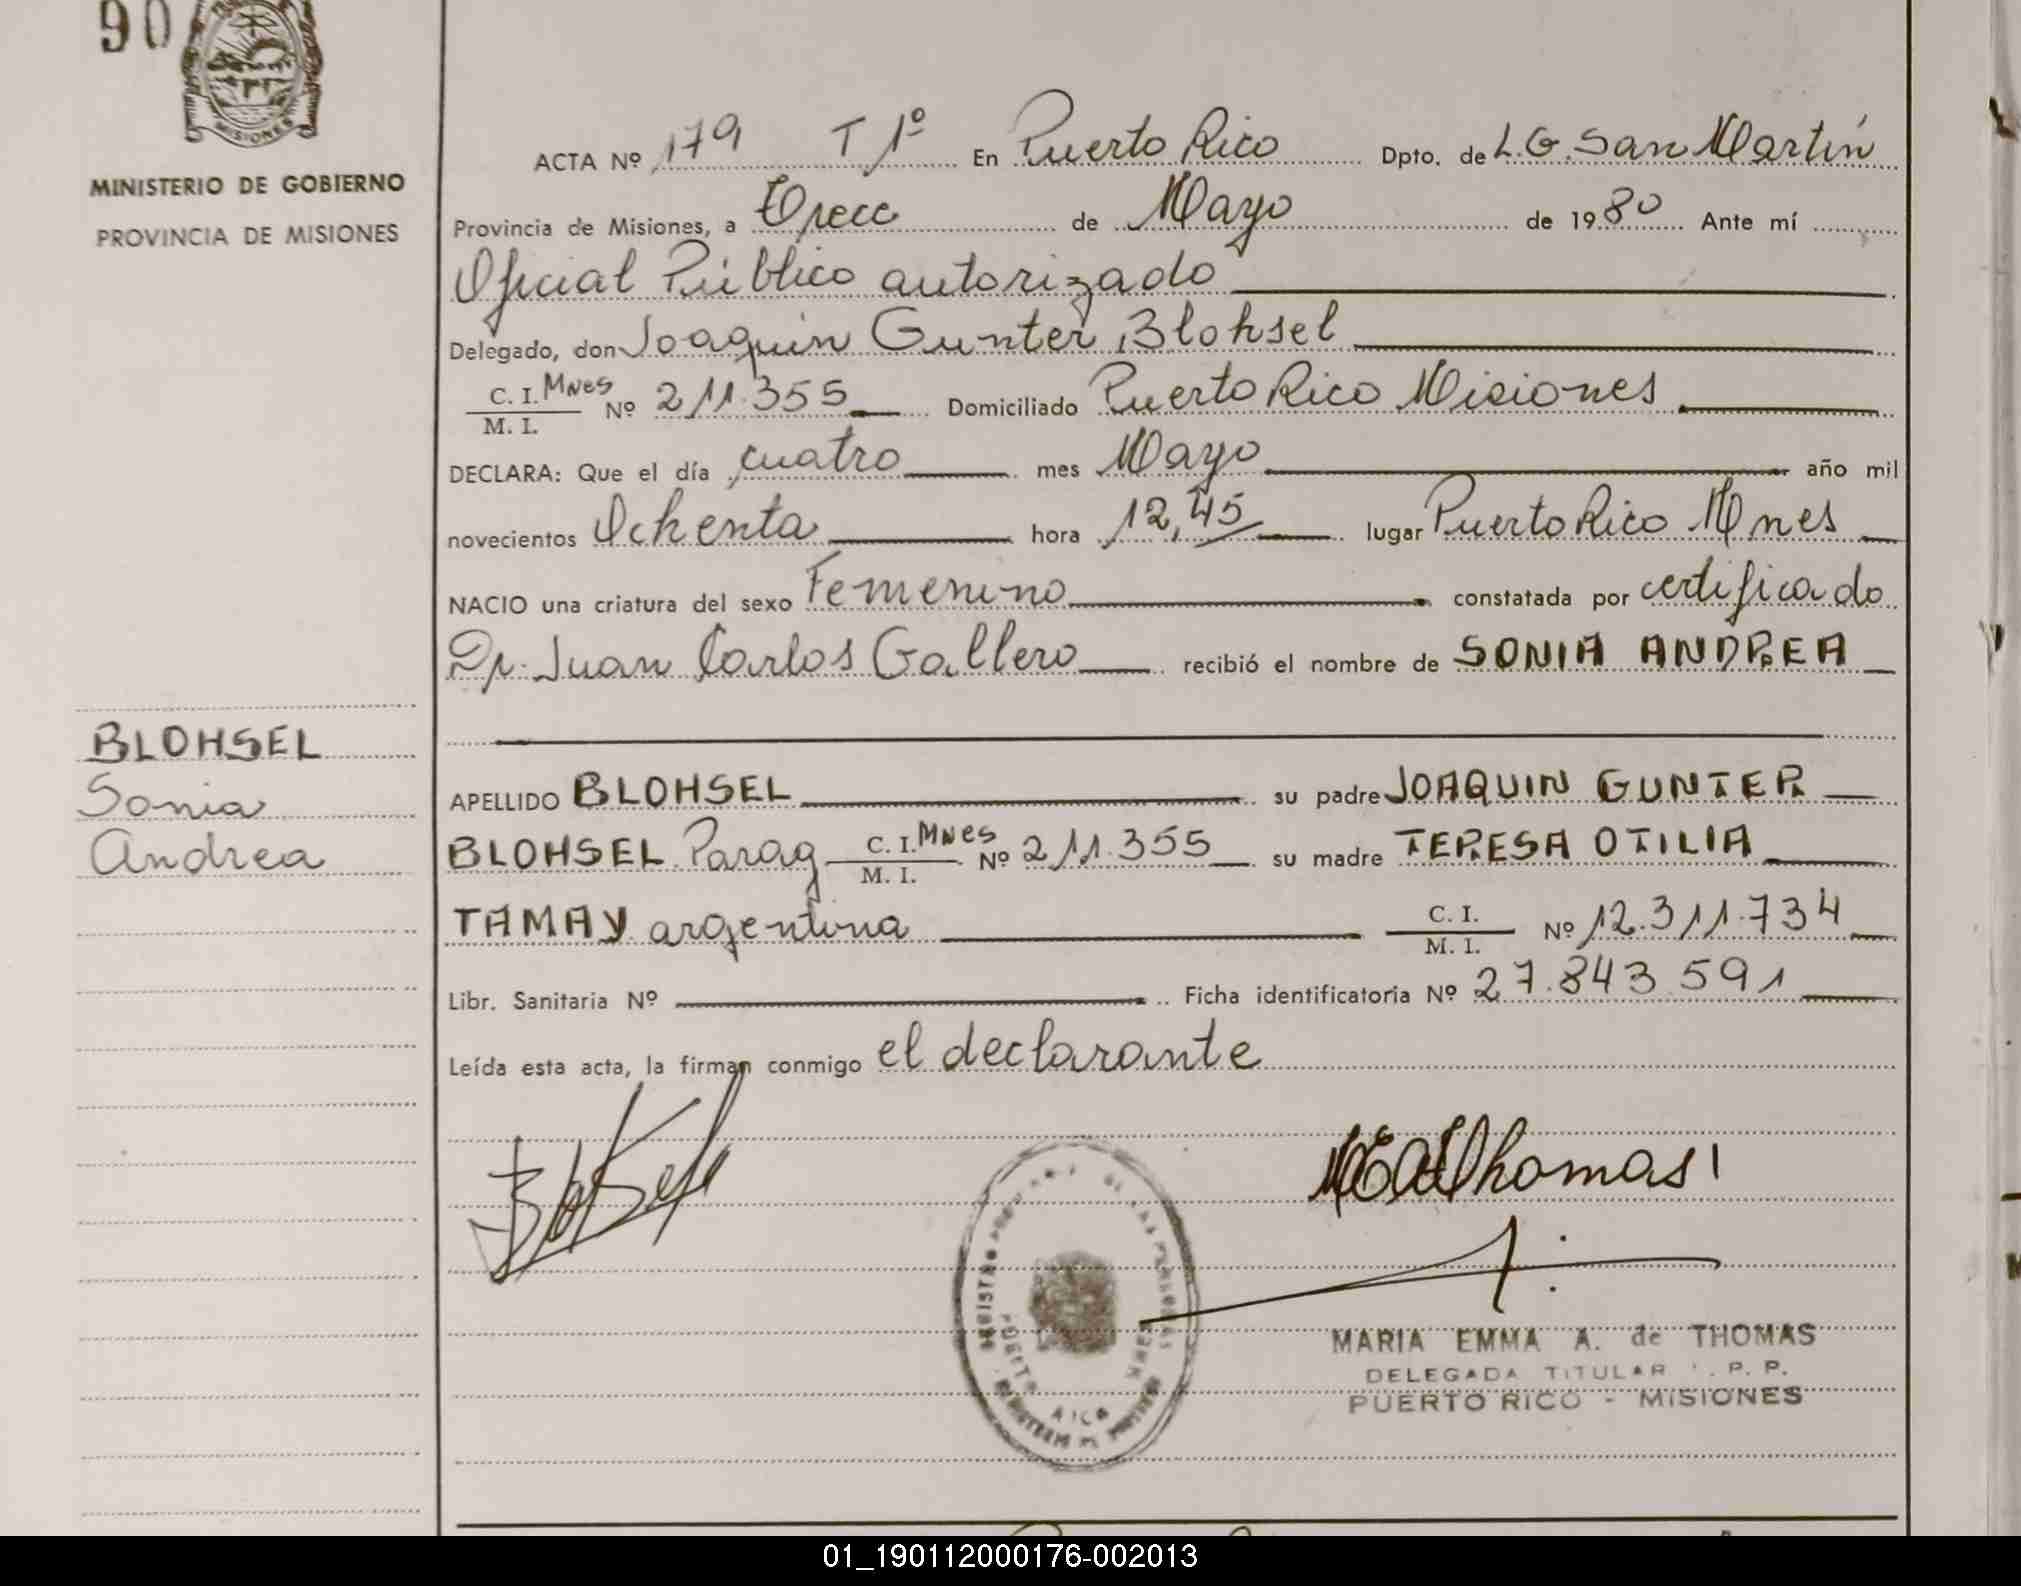 90
MISIONES
MINISTERIO DE GOBIERNO
PROVINCIA DE MISIONES
ACTA Nº 179 T 1º En Puerto Rico Dpto. de L.G. San Martín
Provincia de Misiones, a Trece de Mayo de 1980 Ante mí
Oficial Público autorizado
Delegado, don Joaquin Gunter Blohsel
C. I. Mnes
M. I. Nº 211.355 Domiciliado Puerto Rico Misiones
DECLARA: Que el día cuatro mes Mayo año mil
novecientos Ochenta hora 12,45 lugar Puerto Rico Mnes
NACIO una criatura del sexo Femenino constatada por certificado
Dr. Juan Carlos Gallero recibió el nombre de SONIA ANDREA
BLOHSEL
Sonia
Andrea
APELLIDO BLOHSEL su padre JOAQUIN GUNTER
BLOHSEL Parag C. I. Mnes
M. I. Nº 211.355 su madre TERESA OTILIA
TAMAY argentina C. I.
M. I. Nº 12.311.734
Libr. Sanitaria Nº Ficha identificatoria Nº 27.843.591
Leída esta acta, la firman conmigo el declarante
MARIA EMMA A. de THOMAS
DELEGADA TITULAR . P. P.
PUERTO RICO - MISIONES
01_190112000176-002013